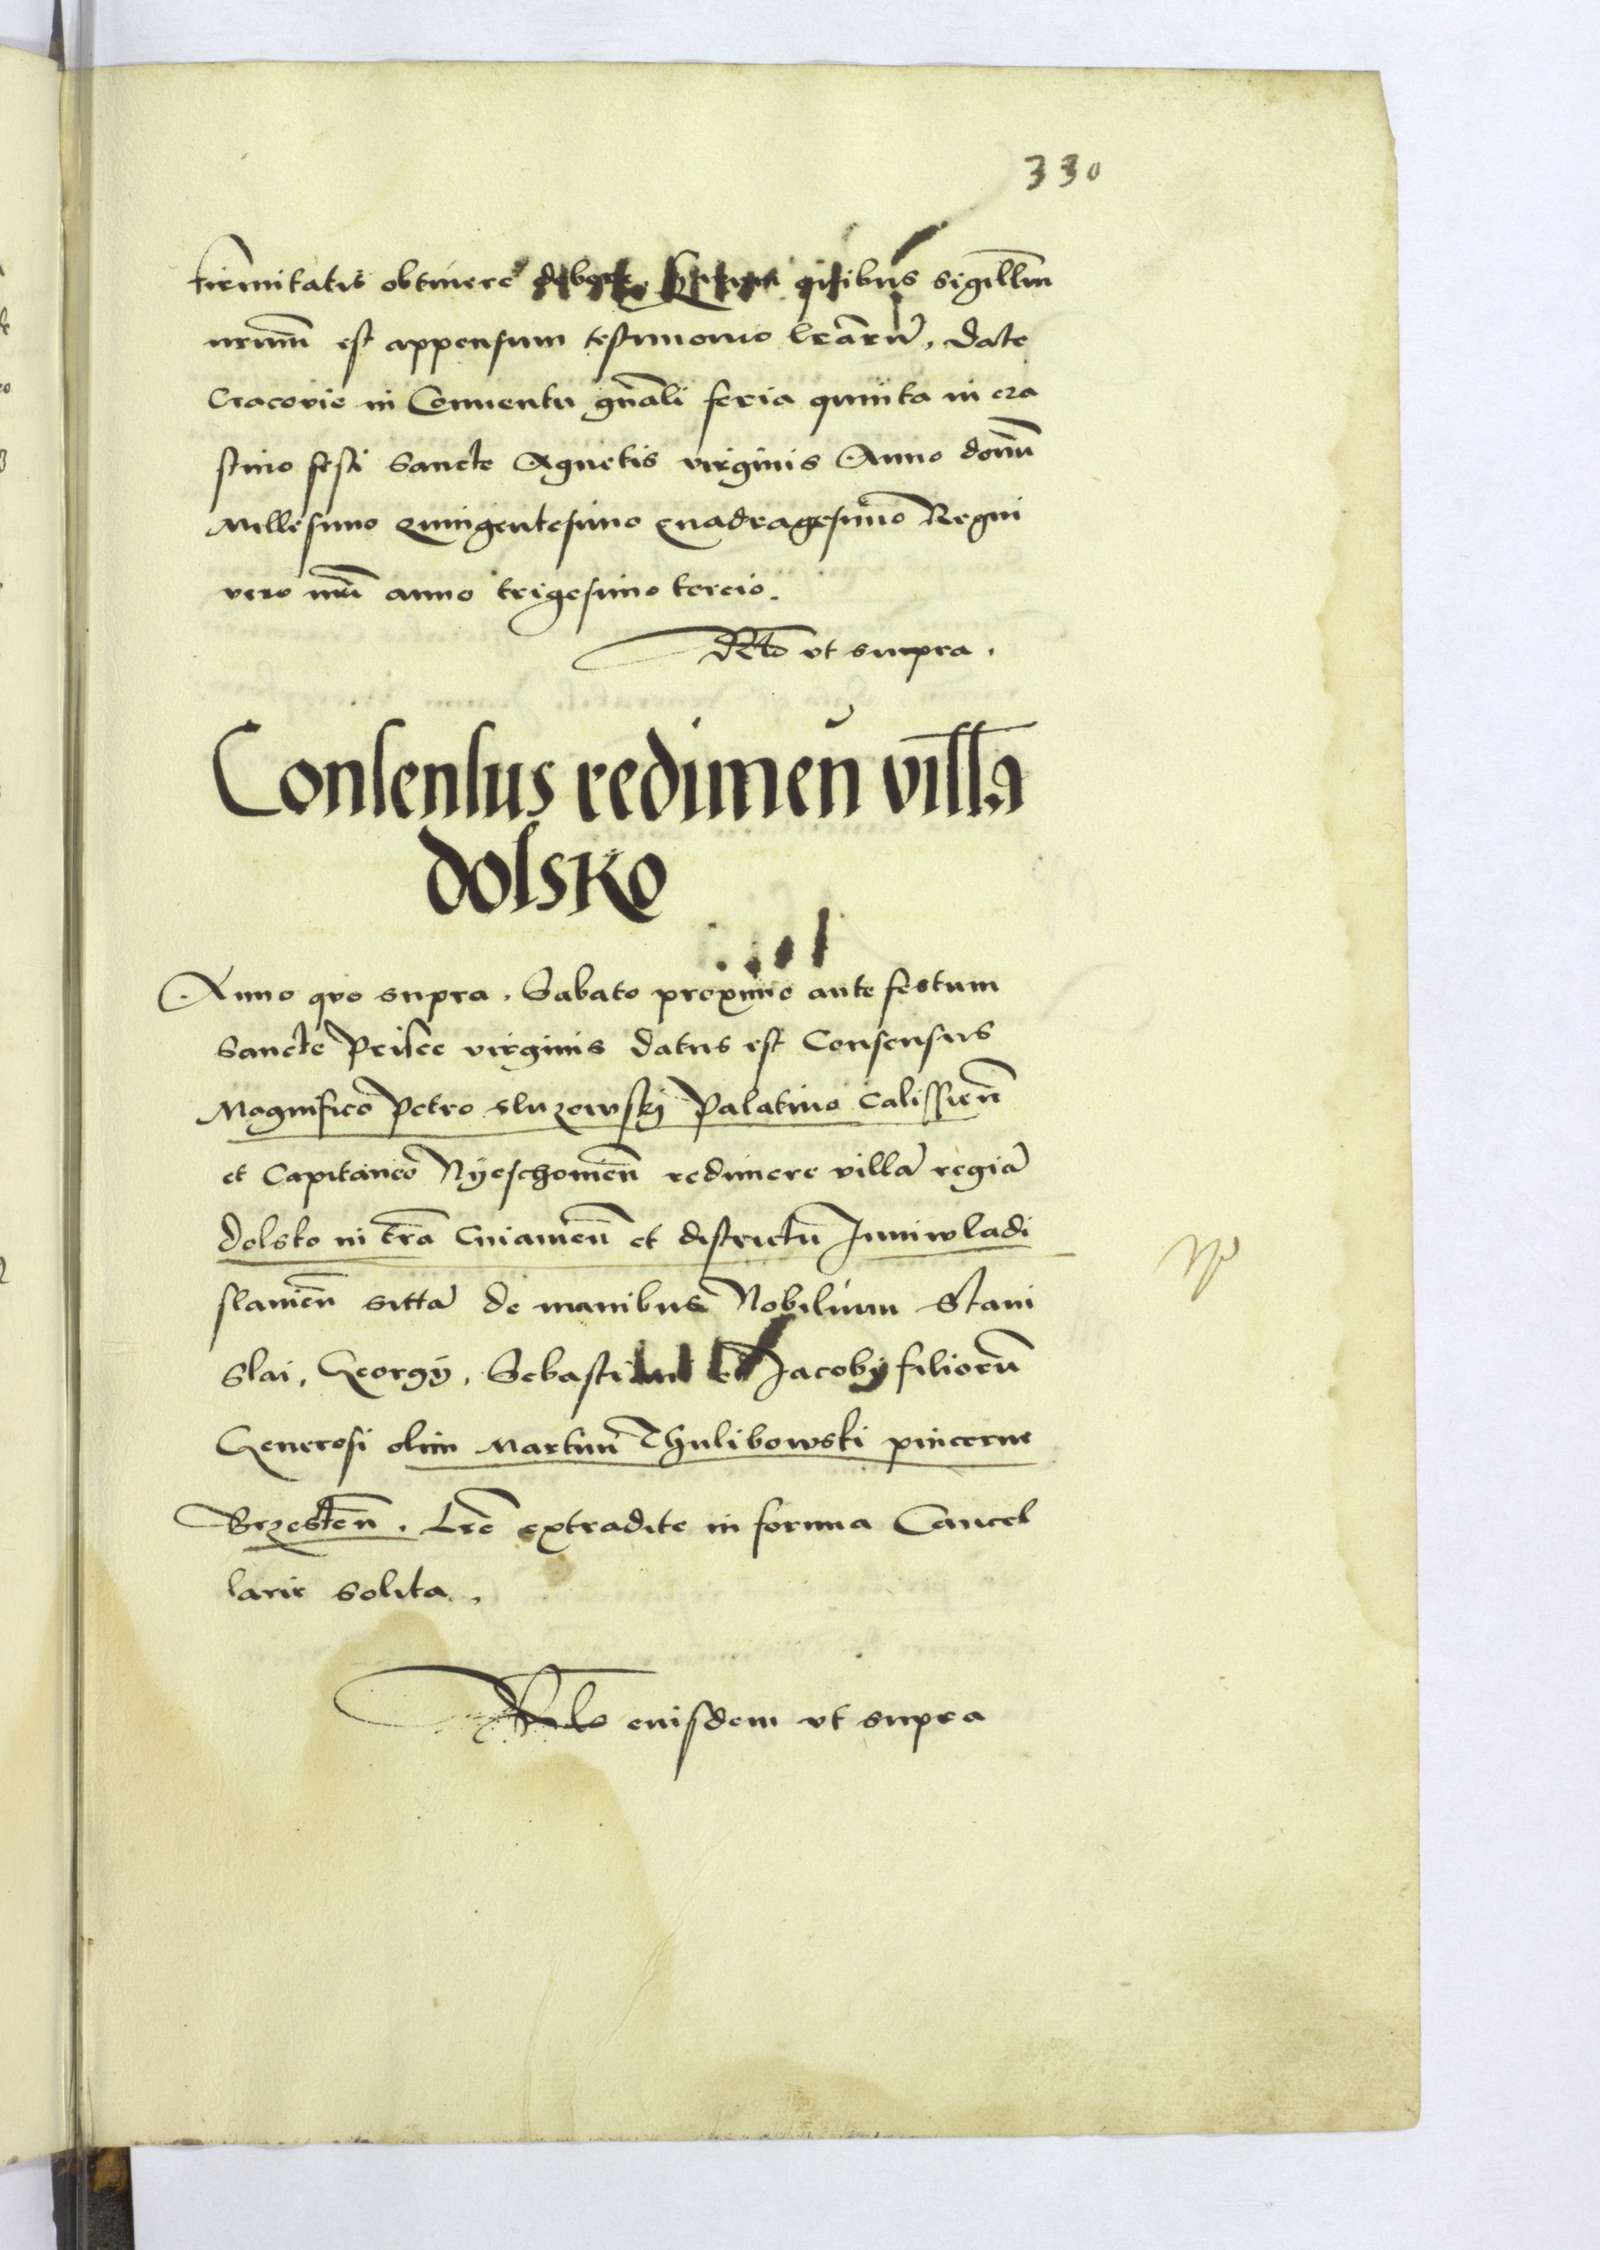 330
firmitatis obtinere debere. Harum quibus sigillum
nrum̄ est appensum testimonio lr̄arum̄. Date
Cracovie in Conventu gn̄ali feria quinta in cra
stino festi Sancte Agnetis virginis Anno domī
Millesimo Quingentesimo Quadragesimo Regni
vero nr̄i anno trigesimo tercio.
Rlō ut supra.
Consensus redimen̄ villā
dolsko
Anno quo supra. Sabato proximo ante festum
Sancte Prisce virginis datus est Consensus
Magnifico Petro Sluzewskj Palatino Calissien̄
et Capitaneo Nyeschowien̄ redimere villā regiā
Dolsko in tr̄a Cuiavien̄ et districtū Juniwladi
slavien̄ sittā de manibus Nobilium Stani
slai, Georgÿ, Sebastiani et Jacobi filiorū
Generosi olim Martini Thulibowski pincerne
Brzesten̄. Lr̄e extradite in forma Cancel
larie solita.
Rlō eiusdem ut supra